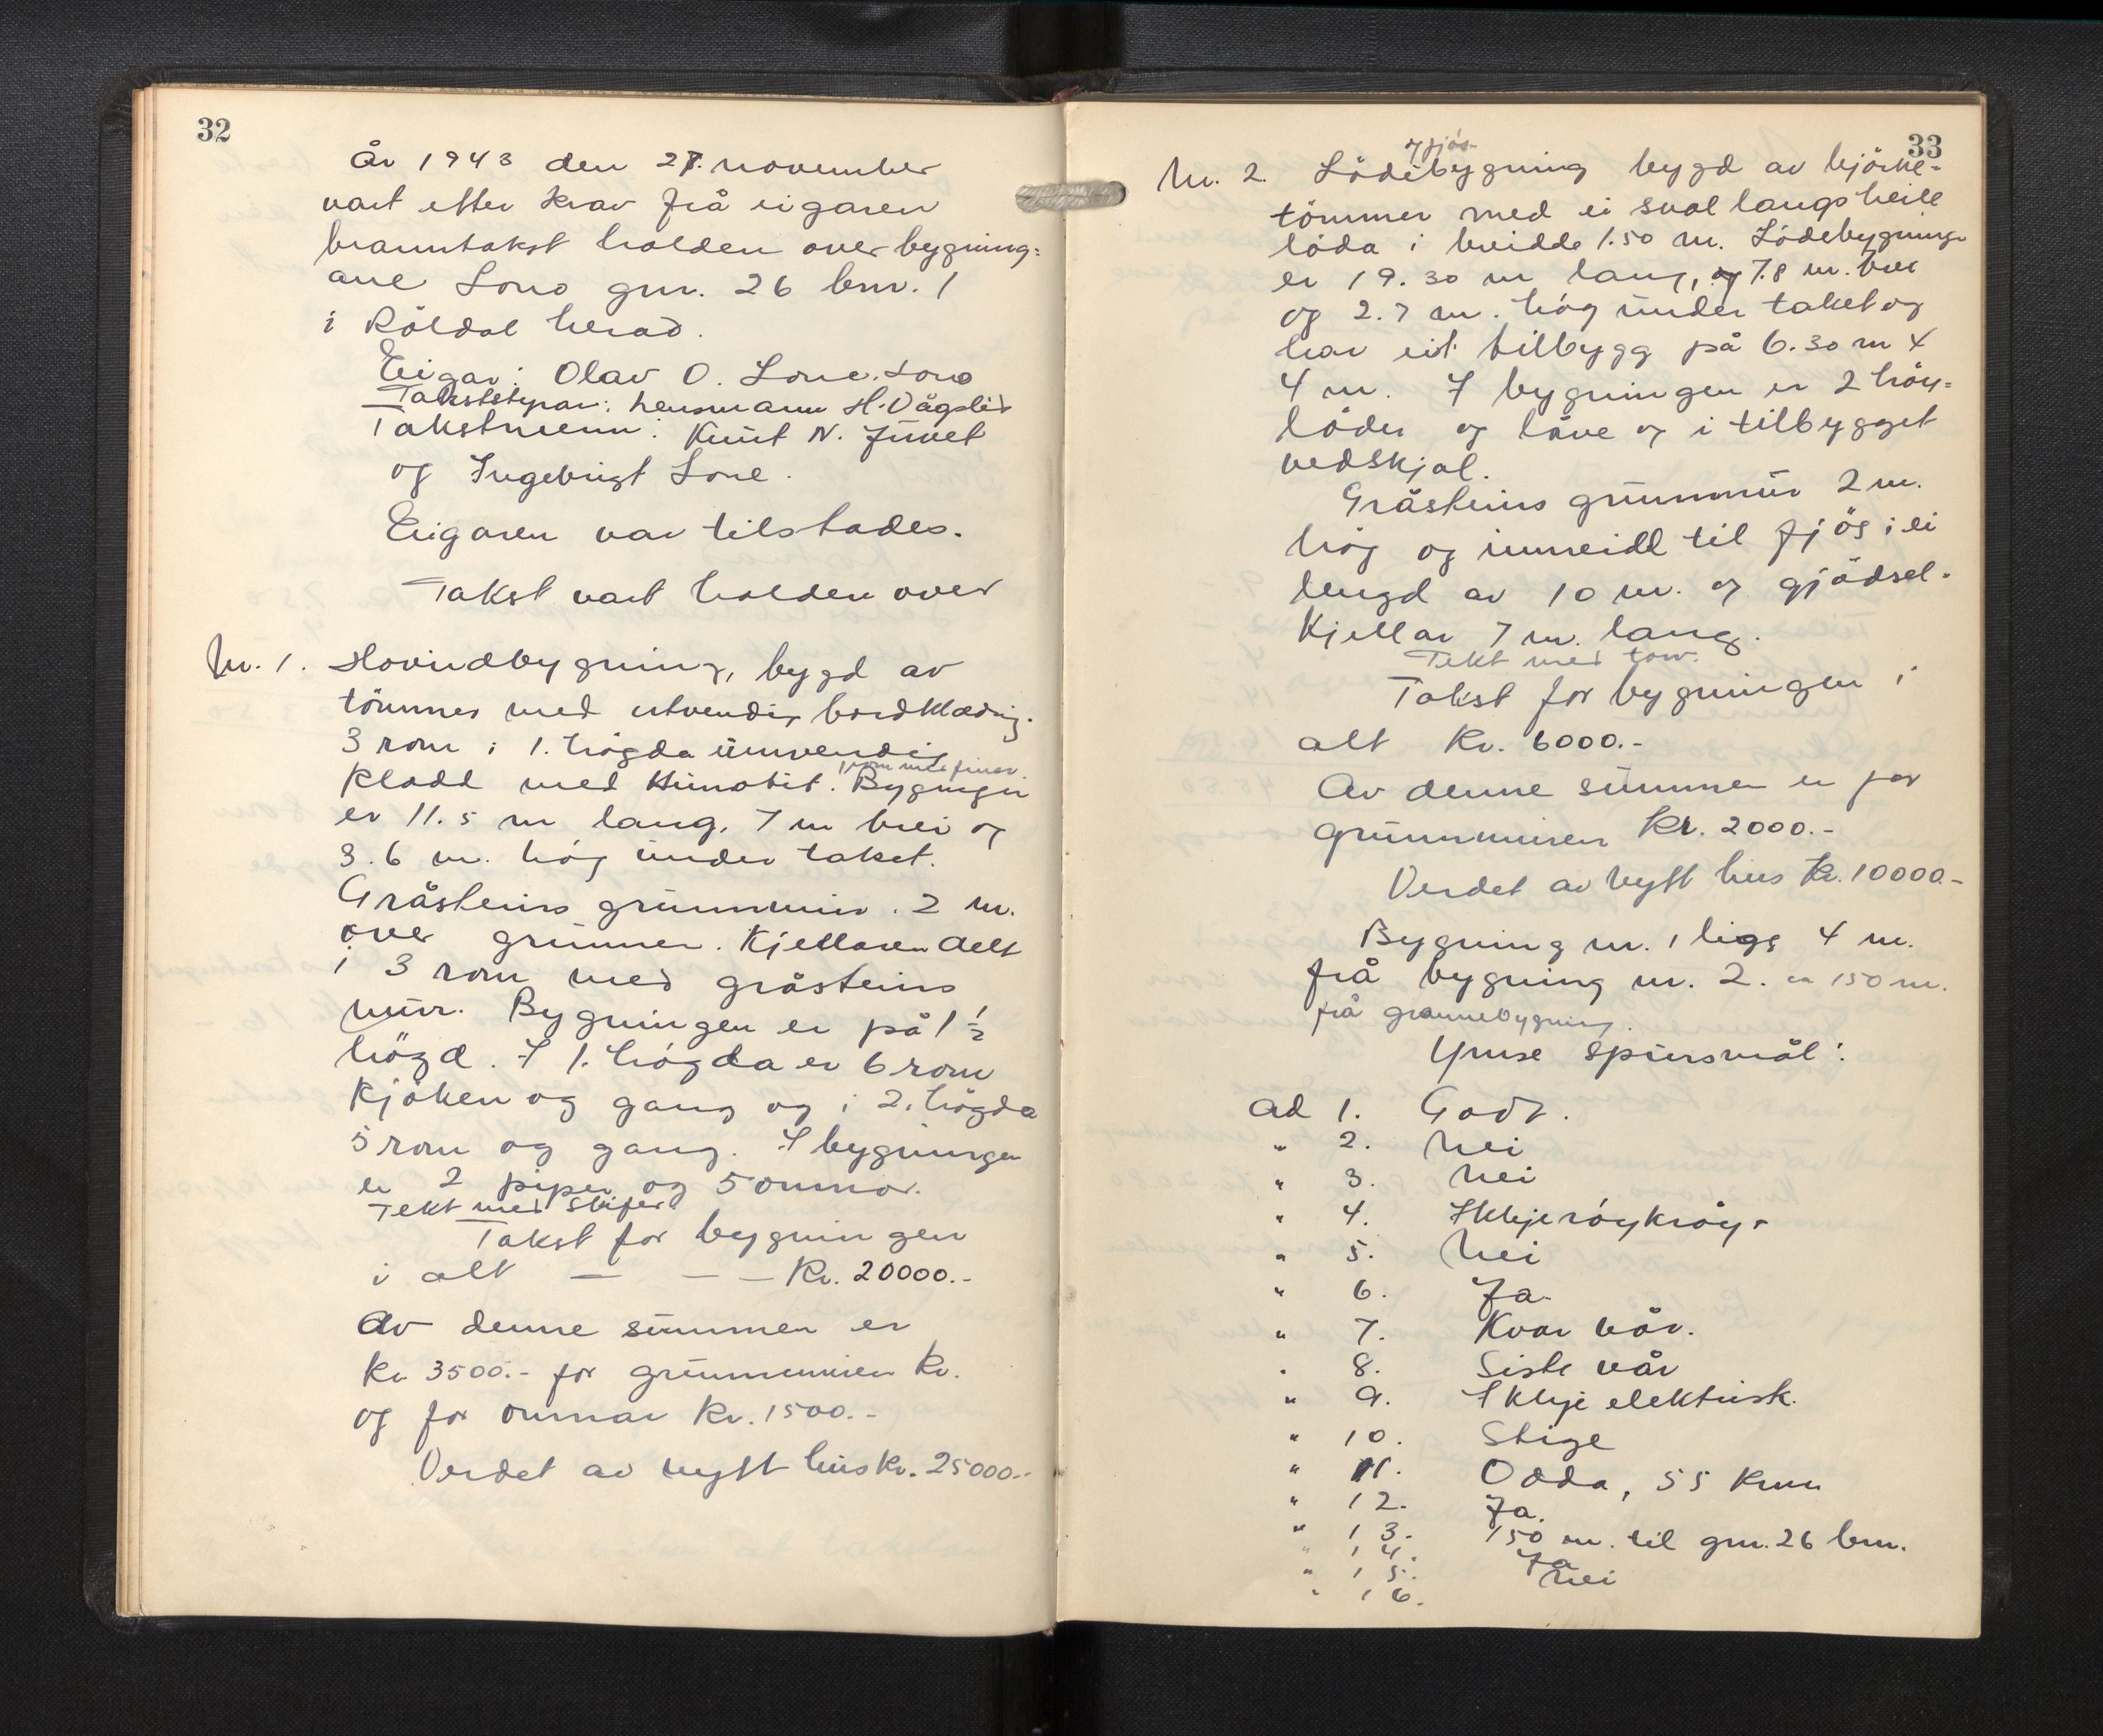 32
År 1943 den 27. november
vart etter krav frå eigaren
branntakst halden over bygning=
ane Lono gnr. 26 bnr. 1
i Röldal herad.
Eigar: Olav O. Lone. Lono
Takststyrar: lensmann H. Vågslid
Takstmenn: Knut N. Juvet
og Ingebrigt Lone.
Eigaren var tilstades.
Takst vart halden over
Nr. 1. Hovudbygning, bygd av
tömmer med utvendig bordklædnig.
3 rom i 1. högda innvendig
1 rom med finer.
kladd med Hunotit. Bygnigen
er 11.5 m lang, 7 m brei og
3.6 m. hög under taket.
Gråsteins grunnmur. 2 m.
over grunnen. Kjellaren delt
i 3 rom med gråsteins
murr. Bygningen er på 1 ½
högd. I 1. högda er 6 rom
kjöken og gang og i 2. högda
5 rom og gang. I bygningen
er 2 piper og 5 omnar.
Tekt med skifer
Takst for bygningen
i alt — — — Kr. 20000.-
Av denne summen er
Kr 3500.- for grunnmuren Kr.
og for omnar Kr. 1500.-
Verdet av nytt hus Kr. 25000.-
33
og fjös-
Nr. 2. Lödebygning bygd av björke-
tömmer med ei sval langs heile
löda i breidde 1.50 m. Lödebygninge
er 19.30 m lang, og 7.8 m. brei
og 2.7 m. hög under taket og
har eit tilbygg på 6.30 m x
4 m. I bygningen er 2 höy=
löder og låve og i tilbygget
vedskjal.
Gråsteins grunnmur 2 m.
hög og innreidd til fjös i ei
lengd av 10 m. og gjödsel-
kjellar 7 m. lang.
Tekt med torv.
Takst for bygningen i
alt Kr. 6000.-
Av denne summen er for
grunnmuren Kr. 2000.-
Verdet av nytt hus Kr. 10000.-
Bygning nr. 1 ligg 4 m.
frå bygning nr. 2. ca 150 m.
frå grannebygning.
Ymse spursmål:
ad 1. Godt.
" 2. Nei
" 3. Nei
" 4. Ikkje
" 5. Nei
" 6. Ja.
" 7. Kvar vår.
" 8. Siste vår
" 9. Ikkje elektrisk.
" 10. Stige
" 11. Odda, 55 km
" 12. Ja.
" 13. 150 m. til gnr. 26 bnr.
" 14. Ja
" 15. Nei
" 16.